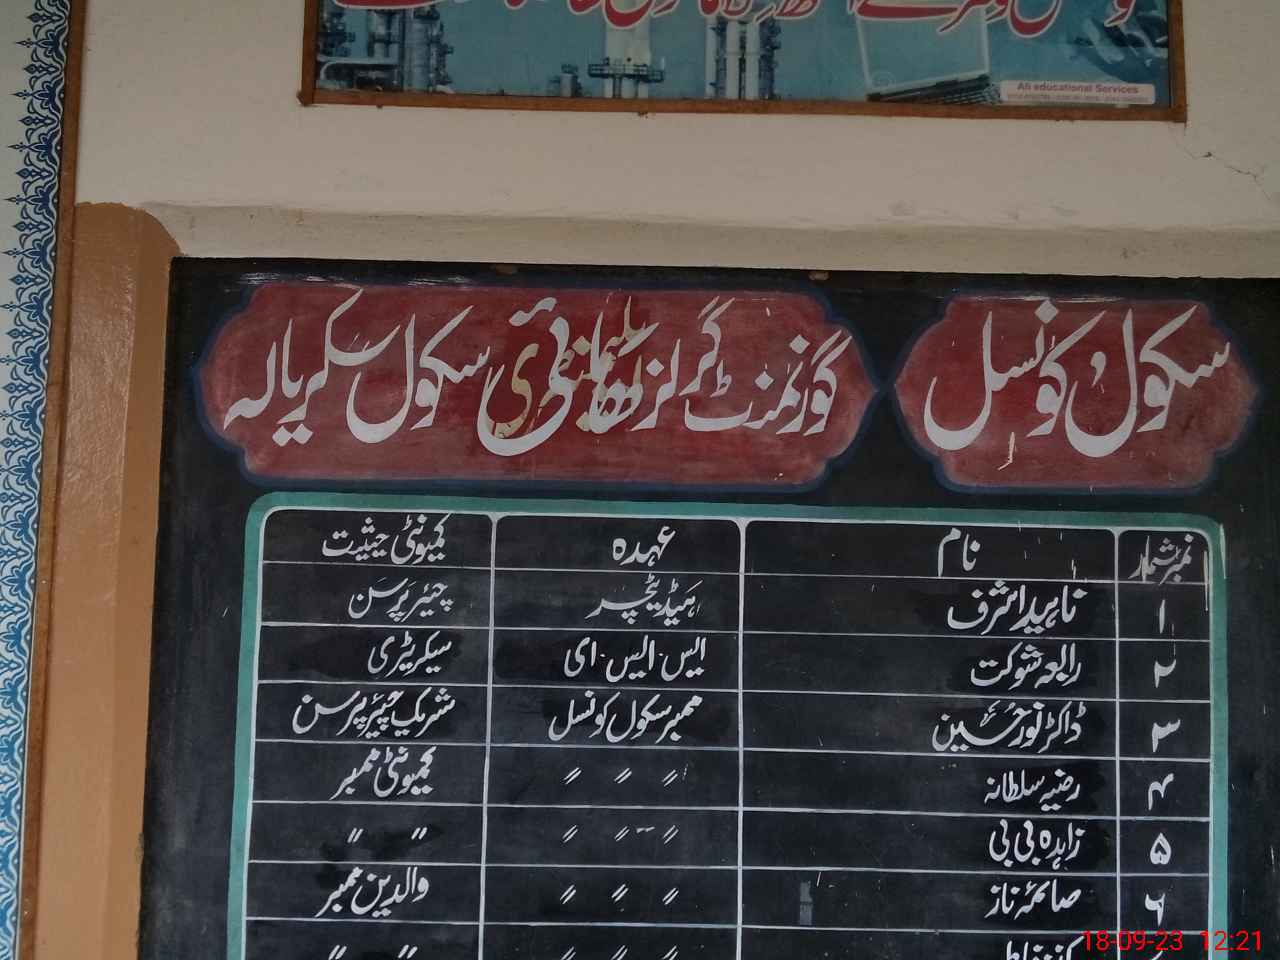 Ali educational Services
سکول کونسل
گورنمنٹ گرلز ایلیمنٹری سکول سکریالہ
نمبر شمار نام عہدہ کمیونٹی حیثیت
۱ ناہید اشرف ہیڈ ٹیچر چیئر پرسن
۲ رابعہ شوکت ایس۔ایس۔ای سیکریٹری
۳ ڈاکٹر نور حسین ممبر سکول کونسل شریک چیئر پرسن
۴ رضیہ سلطانہ 〃 〃 〃 کمیونٹی ممبر
۵ زاہدہ بی بی 〃 〃 〃 〃 〃
۶ صائمہ ناز 〃 〃 〃 والدین ممبر
〃 〃 〃 〃 〃
18-09-23 12:21